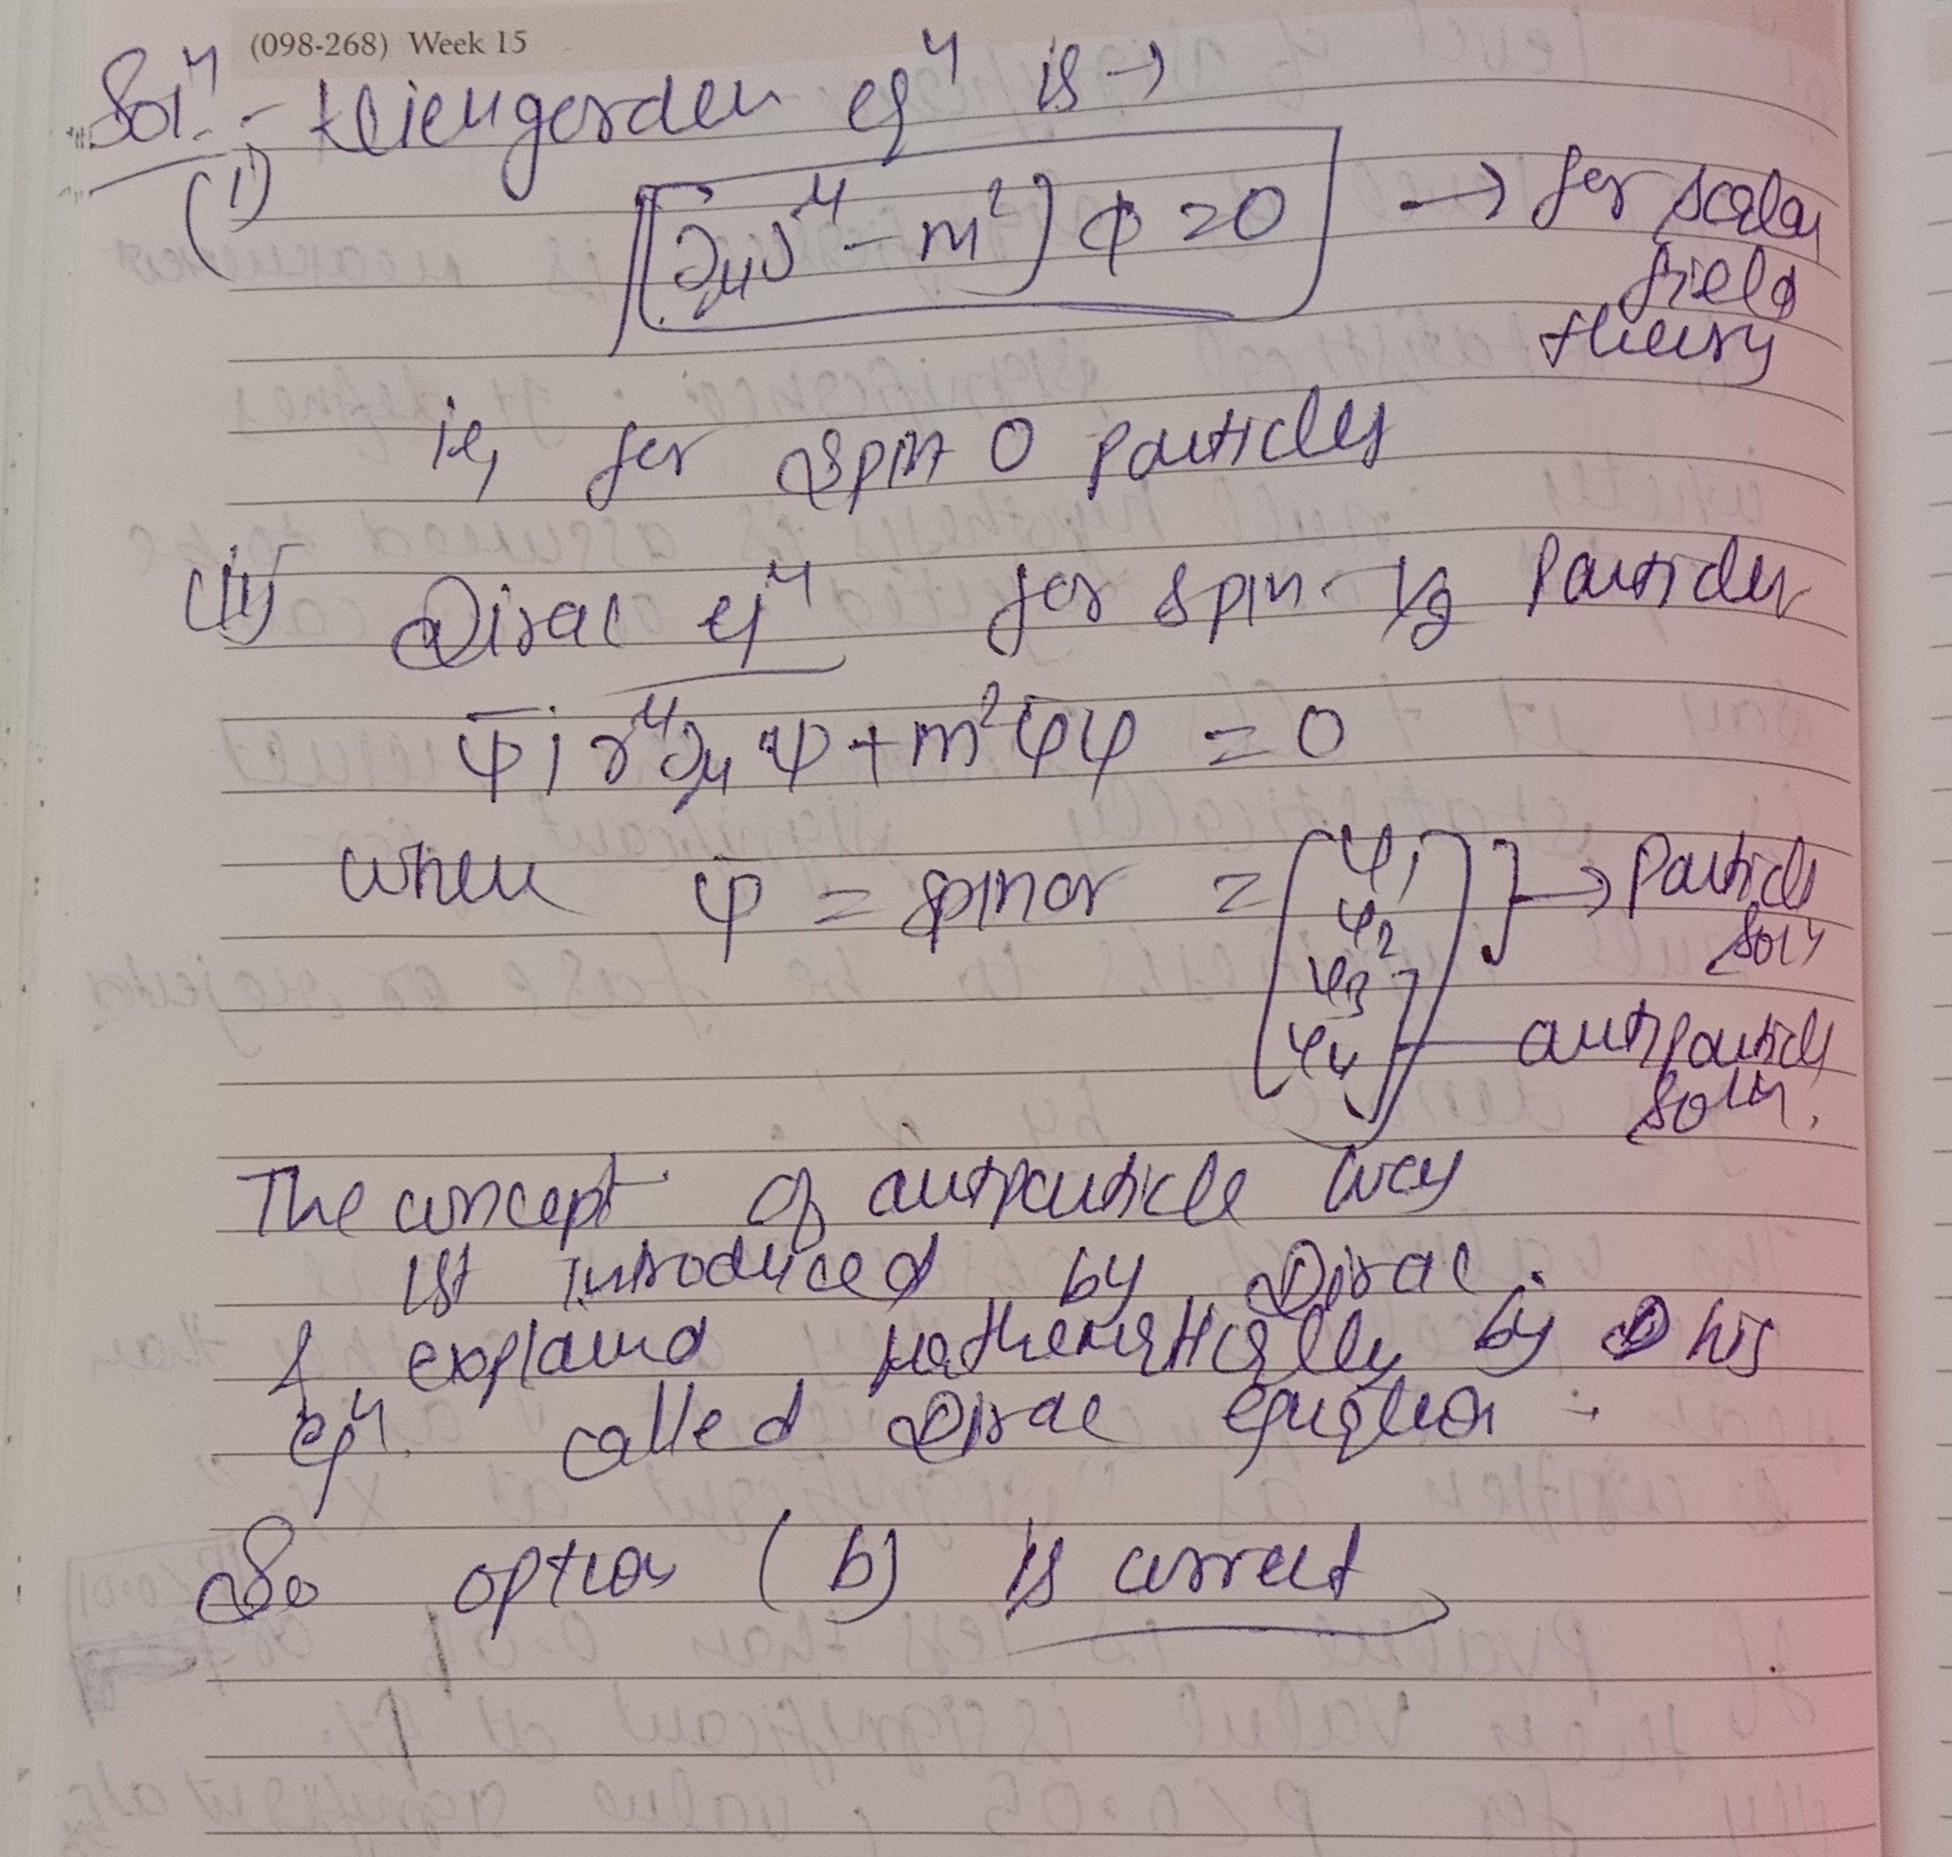 (098-268) Week 15
Solⁿ :- Kleingorden eqⁿ is →
(i) [∂μ∂^μ - m²] ϕ = 0 → for scalar
field
theory
ie, for spin 0 particles
(ii) Dirac eqⁿ for spin-1/2 Particles
ψ̄ i γ^μ ∂μ ψ + m² ψ̄ ψ = 0
where ψ = spinor = [ψ1 ψ2 ψ3 ψ4] → Particle
solⁿ
antiparticle
soln.
The concept of antiparticle was
1st introduced by Dirac.
& explaind mathematically by his
eqⁿ. called Dirac equation -
So option (b) is correct